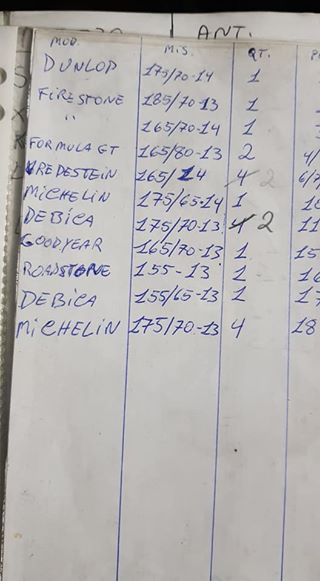 ANT.
MOD. MIS. QT.
DUNLOP 175/70-14 1
FIRESTONE 185/70-13 1
" 165/70-14 1
FORMULA GT 165/80-13 2 4/
VREDESTEIN 165/14 4 2 6/7
MICHELIN 175/65-14 1
DEBICA 175/70-13 4 2 11
GOODYEAR 165/70-13 1 15
ROADSTONE 155-13 1 16
DEBICA 155/65-13 1 17
MICHELIN 175/70-13 4 18